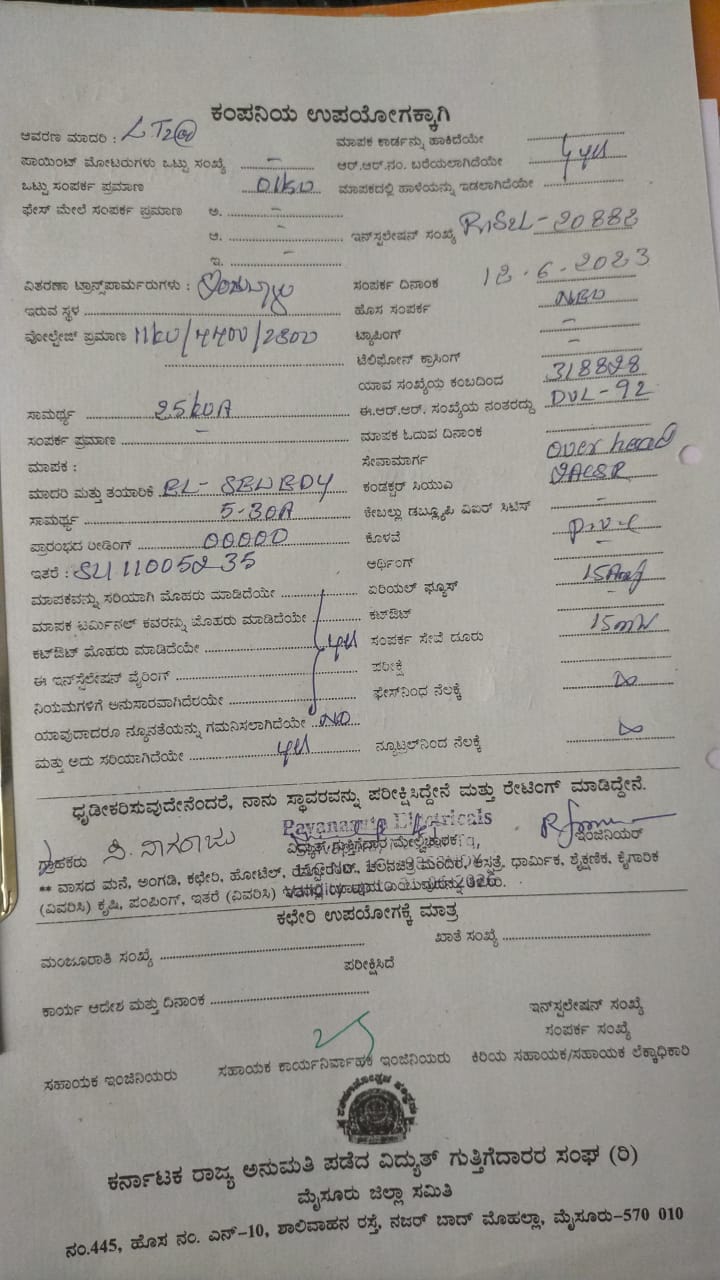 ಕಂಪನಿಯ ಉಪಯೋಗಕ್ಕಾಗಿ
ಆವರಣ ಮಾದರಿ : LT2(a)
ಪಾಯಿಂಟ್ ಮೋಟರುಗಳು ಒಟ್ಟು ಸಂಖ್ಯೆ –
ಒಟ್ಟು ಸಂಪರ್ಕ ಪ್ರಮಾಣ 01kw
ಫೇಸ್ ಮೇಲೆ ಸಂಪರ್ಕ ಪ್ರಮಾಣ ಅ. –
ಆ. –
ಇ. –
ವಿತರಣಾ ಟ್ರಾನ್ಸ್‌ಫಾರ್ಮರುಗಳು :
ಇರುವ ಸ್ಥಳ
ವೋಲ್ಟೇಜ್ ಪ್ರಮಾಣ 11kv/440v/230v
ಸಾಮರ್ಥ್ಯ 25kVA
ಸಂಪರ್ಕ ಪ್ರಮಾಣ –
ಮಾಪಕ :
ಮಾದರಿ ಮತ್ತು ತಯಾರಿಕೆ
ಸಾಮರ್ಥ್ಯ 5-30A
ಪ್ರಾರಂಭದ ರೀಡಿಂಗ್ 00000
ಇತರೆ :
ಮಾಪಕವನ್ನು ಸರಿಯಾಗಿ ಮೊಹರು ಮಾಡಿದೆಯೇ
ಮಾಪಕ ಟರ್ಮಿನಲ್ ಕವರನ್ನು ಮೊಹರು ಮಾಡಿದೆಯೇ
ಕಟ್‌ಔಟ್ ಮೊಹರು ಮಾಡಿದೆಯೇ yes
ಈ ಇನ್‌ಸ್ಟಲೇಷನ್ ವೈರಿಂಗ್
ನಿಯಮಗಳಿಗೆ ಅನುಸಾರವಾಗಿದೆರಯೇ
ಯಾವುದಾದರೂ ನ್ಯೂನತೆಯನ್ನು ಗಮನಿಸಲಾಗಿದೆಯೇ NO
ಮತ್ತು ಅದು ಸರಿಯಾಗಿದೆಯೇ yes
ಮಾಪಕ ಕಾರ್ಡನ್ನು ಹಾಕಿದೆಯೇ
ಆರ್.ಆರ್.ನಂ. ಬರೆಯಲಾಗಿದೆಯೇ yes
ಮಾಪಕದಲ್ಲಿ ಹಾಳೆಯನ್ನು ಇಡಲಾಗಿದೆಯೇ
ಇನ್‌ಸ್ಟಲೇಷನ್ ಸಂಖ್ಯೆ
ಸಂಪರ್ಕ ದಿನಾಂಕ 12.6.2023
ಹೊಸ ಸಂಪರ್ಕ NEW
ಟ್ಯಾಪಿಂಗ್ –
ಟೆಲಿಫೋನ್ ಕ್ರಾಸಿಂಗ್ –
ಯಾವ ಸಂಖ್ಯೆಯ ಕಂಬದಿಂದ 318828
ಈ.ಆರ್.ಆರ್. ಸಂಖ್ಯೆಯ ನಂತರದ್ದು DVL-92
ಮಾಪಕ ಓದುವ ದಿನಾಂಕ
ಸೇವಾಮಾರ್ಗ over head
ಕಂಡಕ್ಟರ್ ಸಿಯುಎ
ಕೇಬಲ್ಲು ಡಬ್ಲ್ಯೂಪಿ ವಿಐಆರ್ ಸಿಟಿಸ್ –
ಕೊಳವೆ P.V.C
ಅರ್ಥಿಂಗ್ –
ಏರಿಯಲ್ ಫ್ಯೂಸ್ 15Amp
ಕಟ್‌ಔಟ್
ಸಂಪರ್ಕ ಸೇವೆ ದೂರು 15mtr
ಪರೀಕ್ಷೆ
ಫೇಸ್‌ನಿಂಧ ನೆಲಕ್ಕೆ ∞
ನ್ಯೂಟ್ರಲ್‌ನಿಂದ ನೆಲಕ್ಕೆ ∞
ಧೃಡೀಕರಿಸುವುದೇನೆಂದರೆ, ನಾನು ಸ್ಥಾವರವನ್ನು ಪರೀಕ್ಷಿಸಿದ್ದೇನೆ ಮತ್ತು ರೇಟಿಂಗ್ ಮಾಡಿದ್ದೇನೆ.
Electricals
ಗ್ರಾಹಕರು ಸಿ. ನಾಗರಾಜು ವಿದ್ಯುತ್ ಗುತ್ತಿಗೆದಾರ ಮೇಲ್ವಿಚಾರಕ ಇಂಜಿನಿಯರ್
** ವಾಸದ ಮನೆ, ಅಂಗಡಿ, ಕಛೇರಿ, ಹೋಟೆಲ್, ಚಲನಚಿತ್ರ ಮಂದಿರ, ಆಸ್ಪತ್ರೆ, ಧಾರ್ಮಿಕ, ಶೈಕ್ಷಣಿಕ, ಕೈಗಾರಿಕೆ
(ವಿವರಿಸಿ) ಕೃಷಿ, ಪಂಪಿಂಗ್, ಇತರೆ (ವಿವರಿಸಿ)
ಕಛೇರಿ ಉಪಯೋಗಕ್ಕೆ ಮಾತ್ರ
ಮಂಜೂರಾತಿ ಸಂಖ್ಯೆ ಖಾತೆ ಸಂಖ್ಯೆ
ಪರೀಕ್ಷಿಸಿದೆ
ಕಾರ್ಯ ಆದೇಶ ಮತ್ತು ದಿನಾಂಕ
ಇನ್‌ಸ್ಪಲೇಷನ್ ಸಂಖ್ಯೆ
ಸಂಪರ್ಕ ಸಂಖ್ಯೆ
ಸಹಾಯಕ ಇಂಜಿನಿಯರು ಸಹಾಯಕ ಕಾರ್ಯನಿರ್ವಾಹಕ ಇಂಜಿನಿಯರು ಕಿರಿಯ ಸಹಾಯಕ/ಸಹಾಯಕ ಲೆಕ್ಕಾಧಿಕಾರಿ
ಕರ್ನಾಟಕ ರಾಜ್ಯ ಅನುಮತಿ ಪಡೆದ ವಿದ್ಯುತ್ ಗುತ್ತಿಗೆದಾರರ ಸಂಘ (ರಿ)
ಮೈಸೂರು ಜಿಲ್ಲಾ ಸಮಿತಿ
ನಂ.445, ಹೊಸ ನಂ. ಎನ್-10, ಶಾಲಿವಾಹನ ರಸ್ತೆ, ನಜರ್ ಬಾದ್ ಮೊಹಲ್ಲಾ, ಮೈಸೂರು-570 010